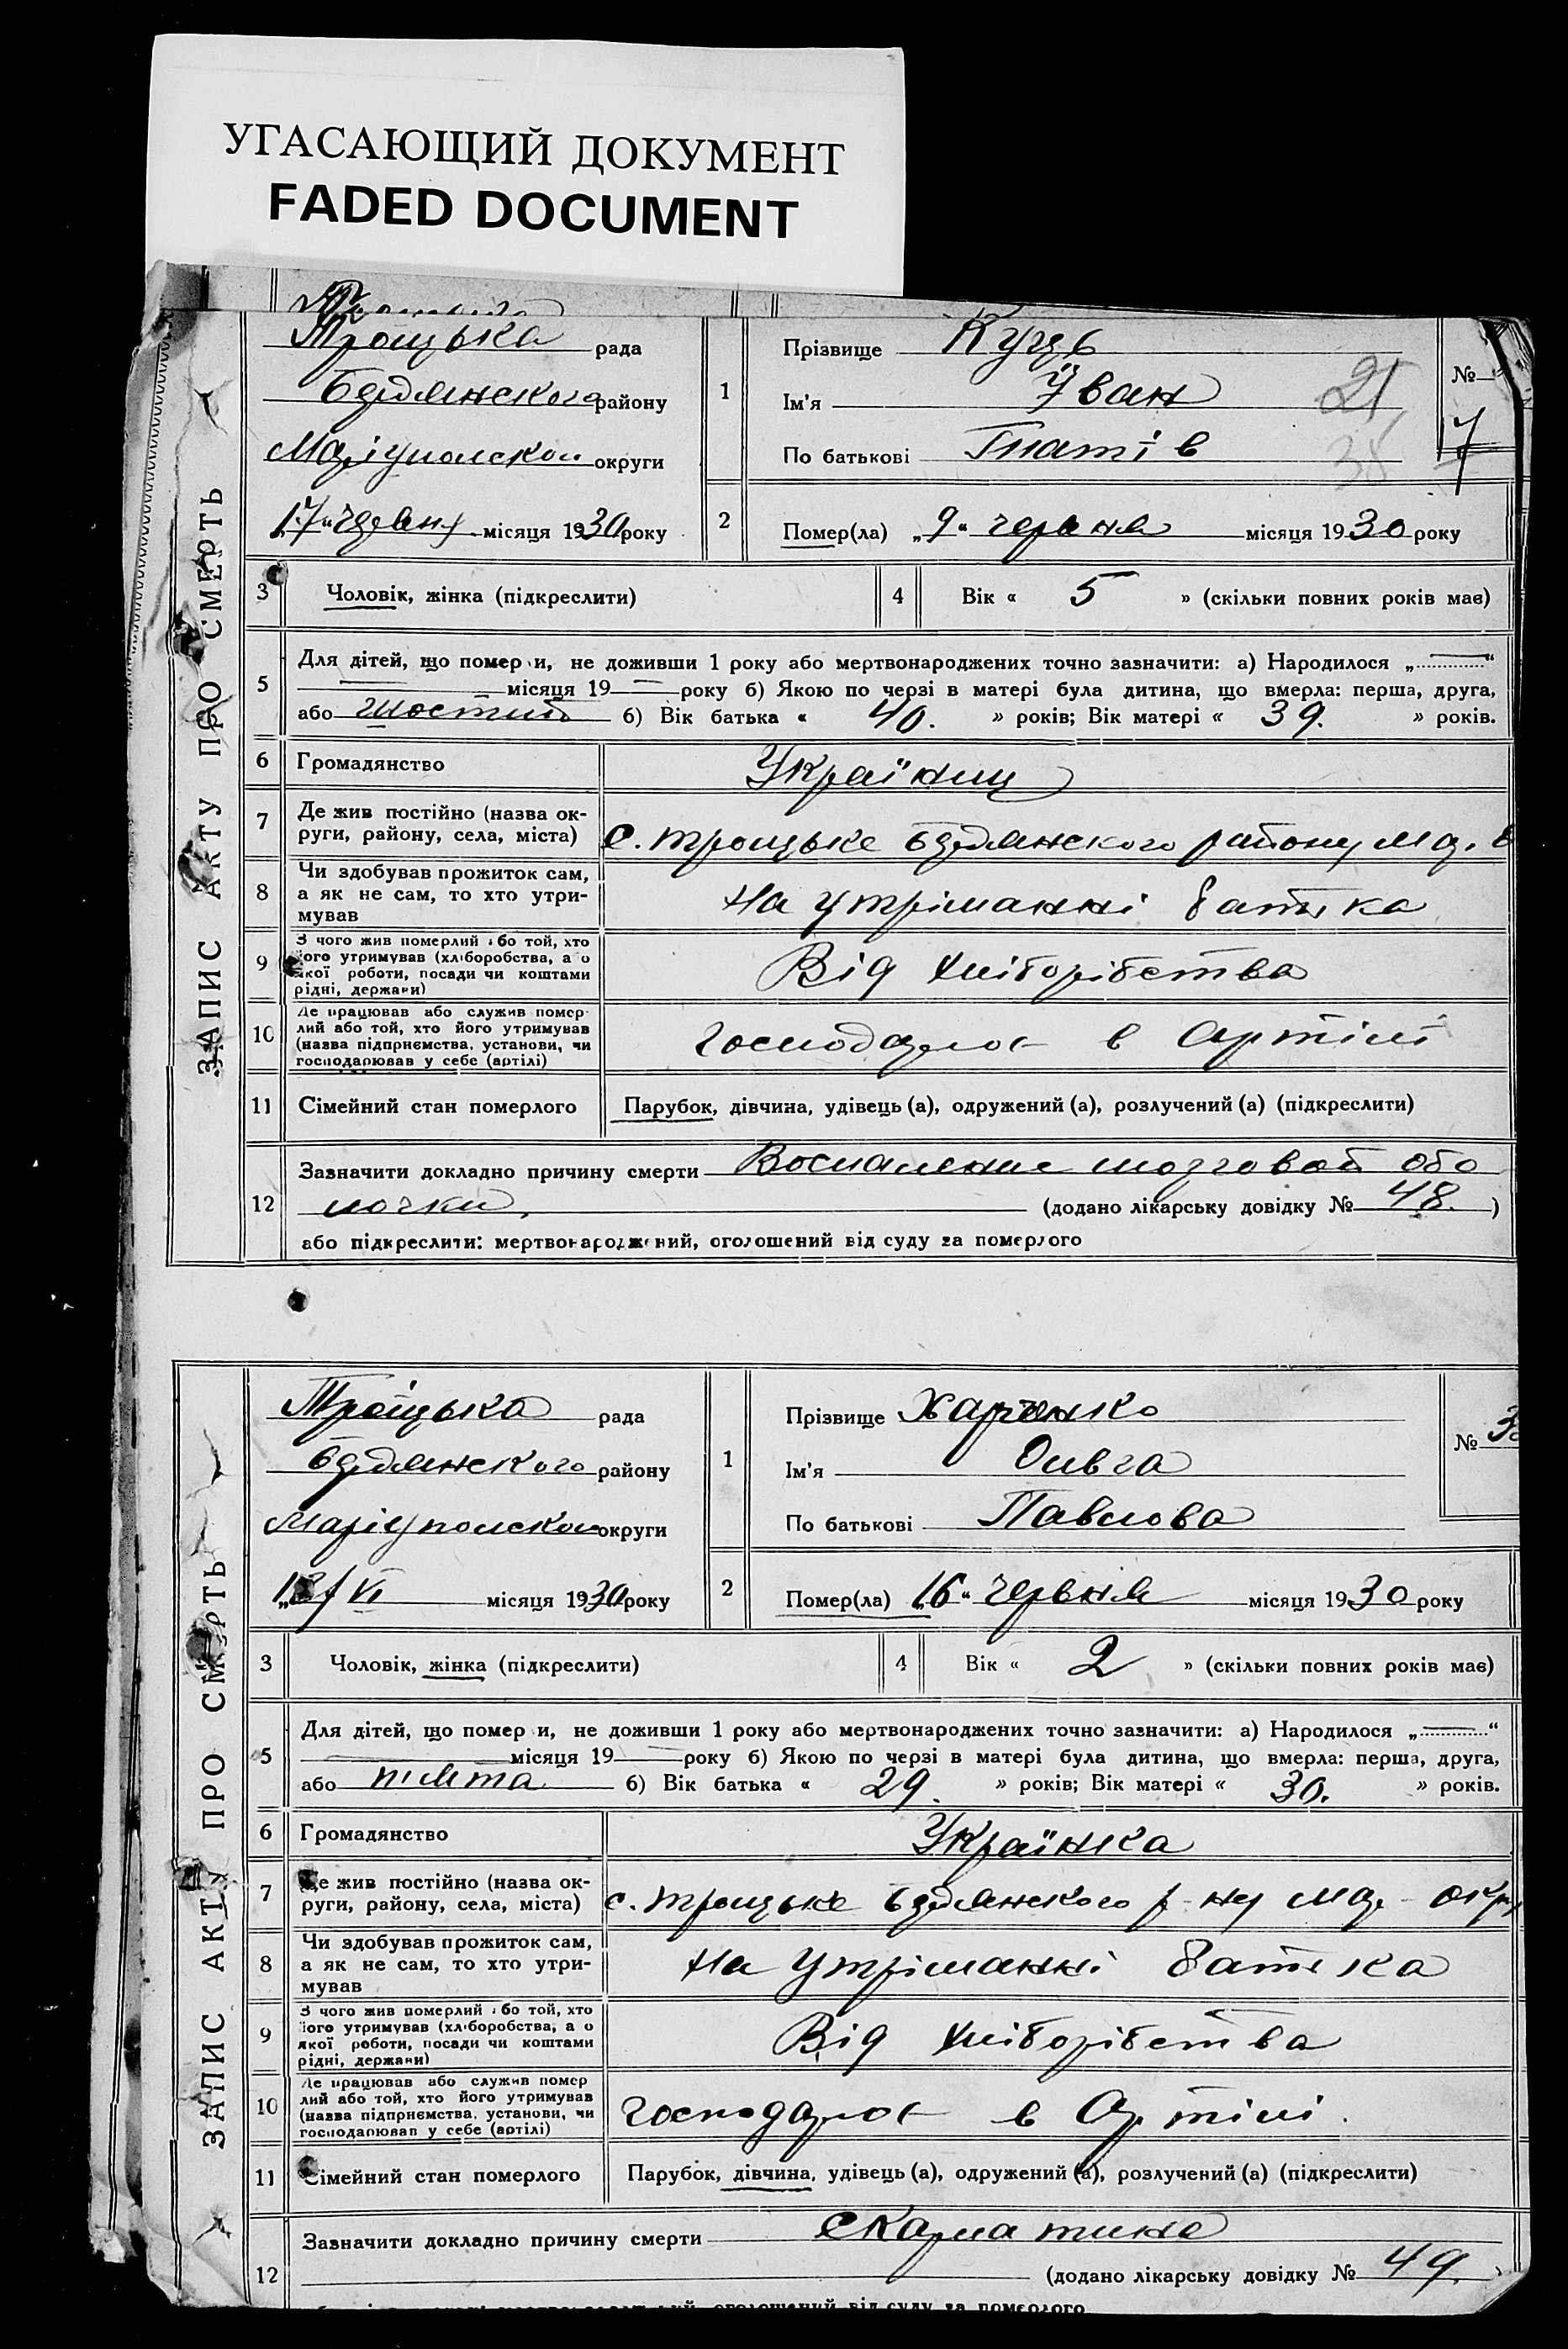 УГАСАЮЩИЙ ДОКУМЕНТ
FADED DOCUMENT
ЗАПИС АКТУ ПРО СМЕРТЬ
Троцька рада
Бердянского району
Маріуполскои округи
„17“ червня місяця 1930 року
1 Прізвище
Ім'я Іван
По батькові Гнатів
№
7
21
38
2 Помер(ла) „9“ червня місяця 1930 року
3 Чоловік, жінка (підкреслити)
4 Вік « 5 » (скільки повних років має)
5 Для дітей, що померли, не доживши 1 року або мертвонароджених точно зазначити: а) Народилося „ “
місяця 19 року б) Якою по черзі в матері була дитина, що вмерла: перша, друга,
або шостий б) Вік батька « 40. » років; Вік матері « 39. » років.
6 Громадянство Українец
7 Де жив постійно (назва ок-
руги, району, села, міста) с. Троцьке Бердянского району Мар. о
8 Чи здобував прожиток сам,
а як не сам, то хто утри-
мував
На утріманні батька
9 З чого жив померлий або той, хто
його утримував (хліборобства, або
якої роботи, посади чи коштами
рідні, держави)
Від хліборібства
10 Де працював або служив помер-
лий або той, хто його утримував
(назва підприємства, установи, чи
господарював у себе (артілі)
в Артілі
11 Сімейний стан померлого Парубок, дівчина, удівець (а), одружений (а), розлучений (а) (підкреслити)
12 Зазначити докладно причину смерти Воспаление мозговой обо
лочки. (додано лікарську довідку № 48. )
або підкреслити: мертвонароджений, оголошений від суду за померлого
ЗАПИС АКТУ ПРО СМЕРТЬ
Троїцька рада
Бердянского району
Маріуполскои округи
VI місяця 1930 року
1 Прізвище Харченко
Ім'я Ольга
По батькові Павлова
№ 3
2 Помер(ла) „16“ червня місяця 1930 року
3 Чоловік, жінка (підкреслити)
4 Вік « 2 » (скільки повних років має)
5 Для дітей, що померли, не доживши 1 року або мертвонароджених точно зазначити: а) Народилося „ “
місяця 19 року б) Якою по черзі в матері була дитина, що вмерла: перша, друга,
або пʼята б) Вік батька « 29. » років; Вік матері « 30. » років.
6 Громадянство Українка
7 Де жив постійно (назва ок-
руги, району, села, міста) с. Троцьке Бердянского р-ну Мар. окр,
8 Чи здобував прожиток сам,
а як не сам, то хто утри-
мував
На утріманні батька
9 З чого жив померлий або той, хто
його утримував (хліборобства, або
якої роботи, посади чи коштами
рідні, держави)
Від хліборібства
10 Де працював або служив помер
лий або той, хто його утримував
(назва підприємства, установи, чи
господарював у себе (артілі)
в Артілі.
11 Сімейний стан померлого Парубок, дівчина, удівець (а), одружений (а), розлучений (а) (підкреслити)
12 Зазначити докладно причину смерти Скарлатина
(додано лікарську довідку № 49. )
оголошений від суду за померлого